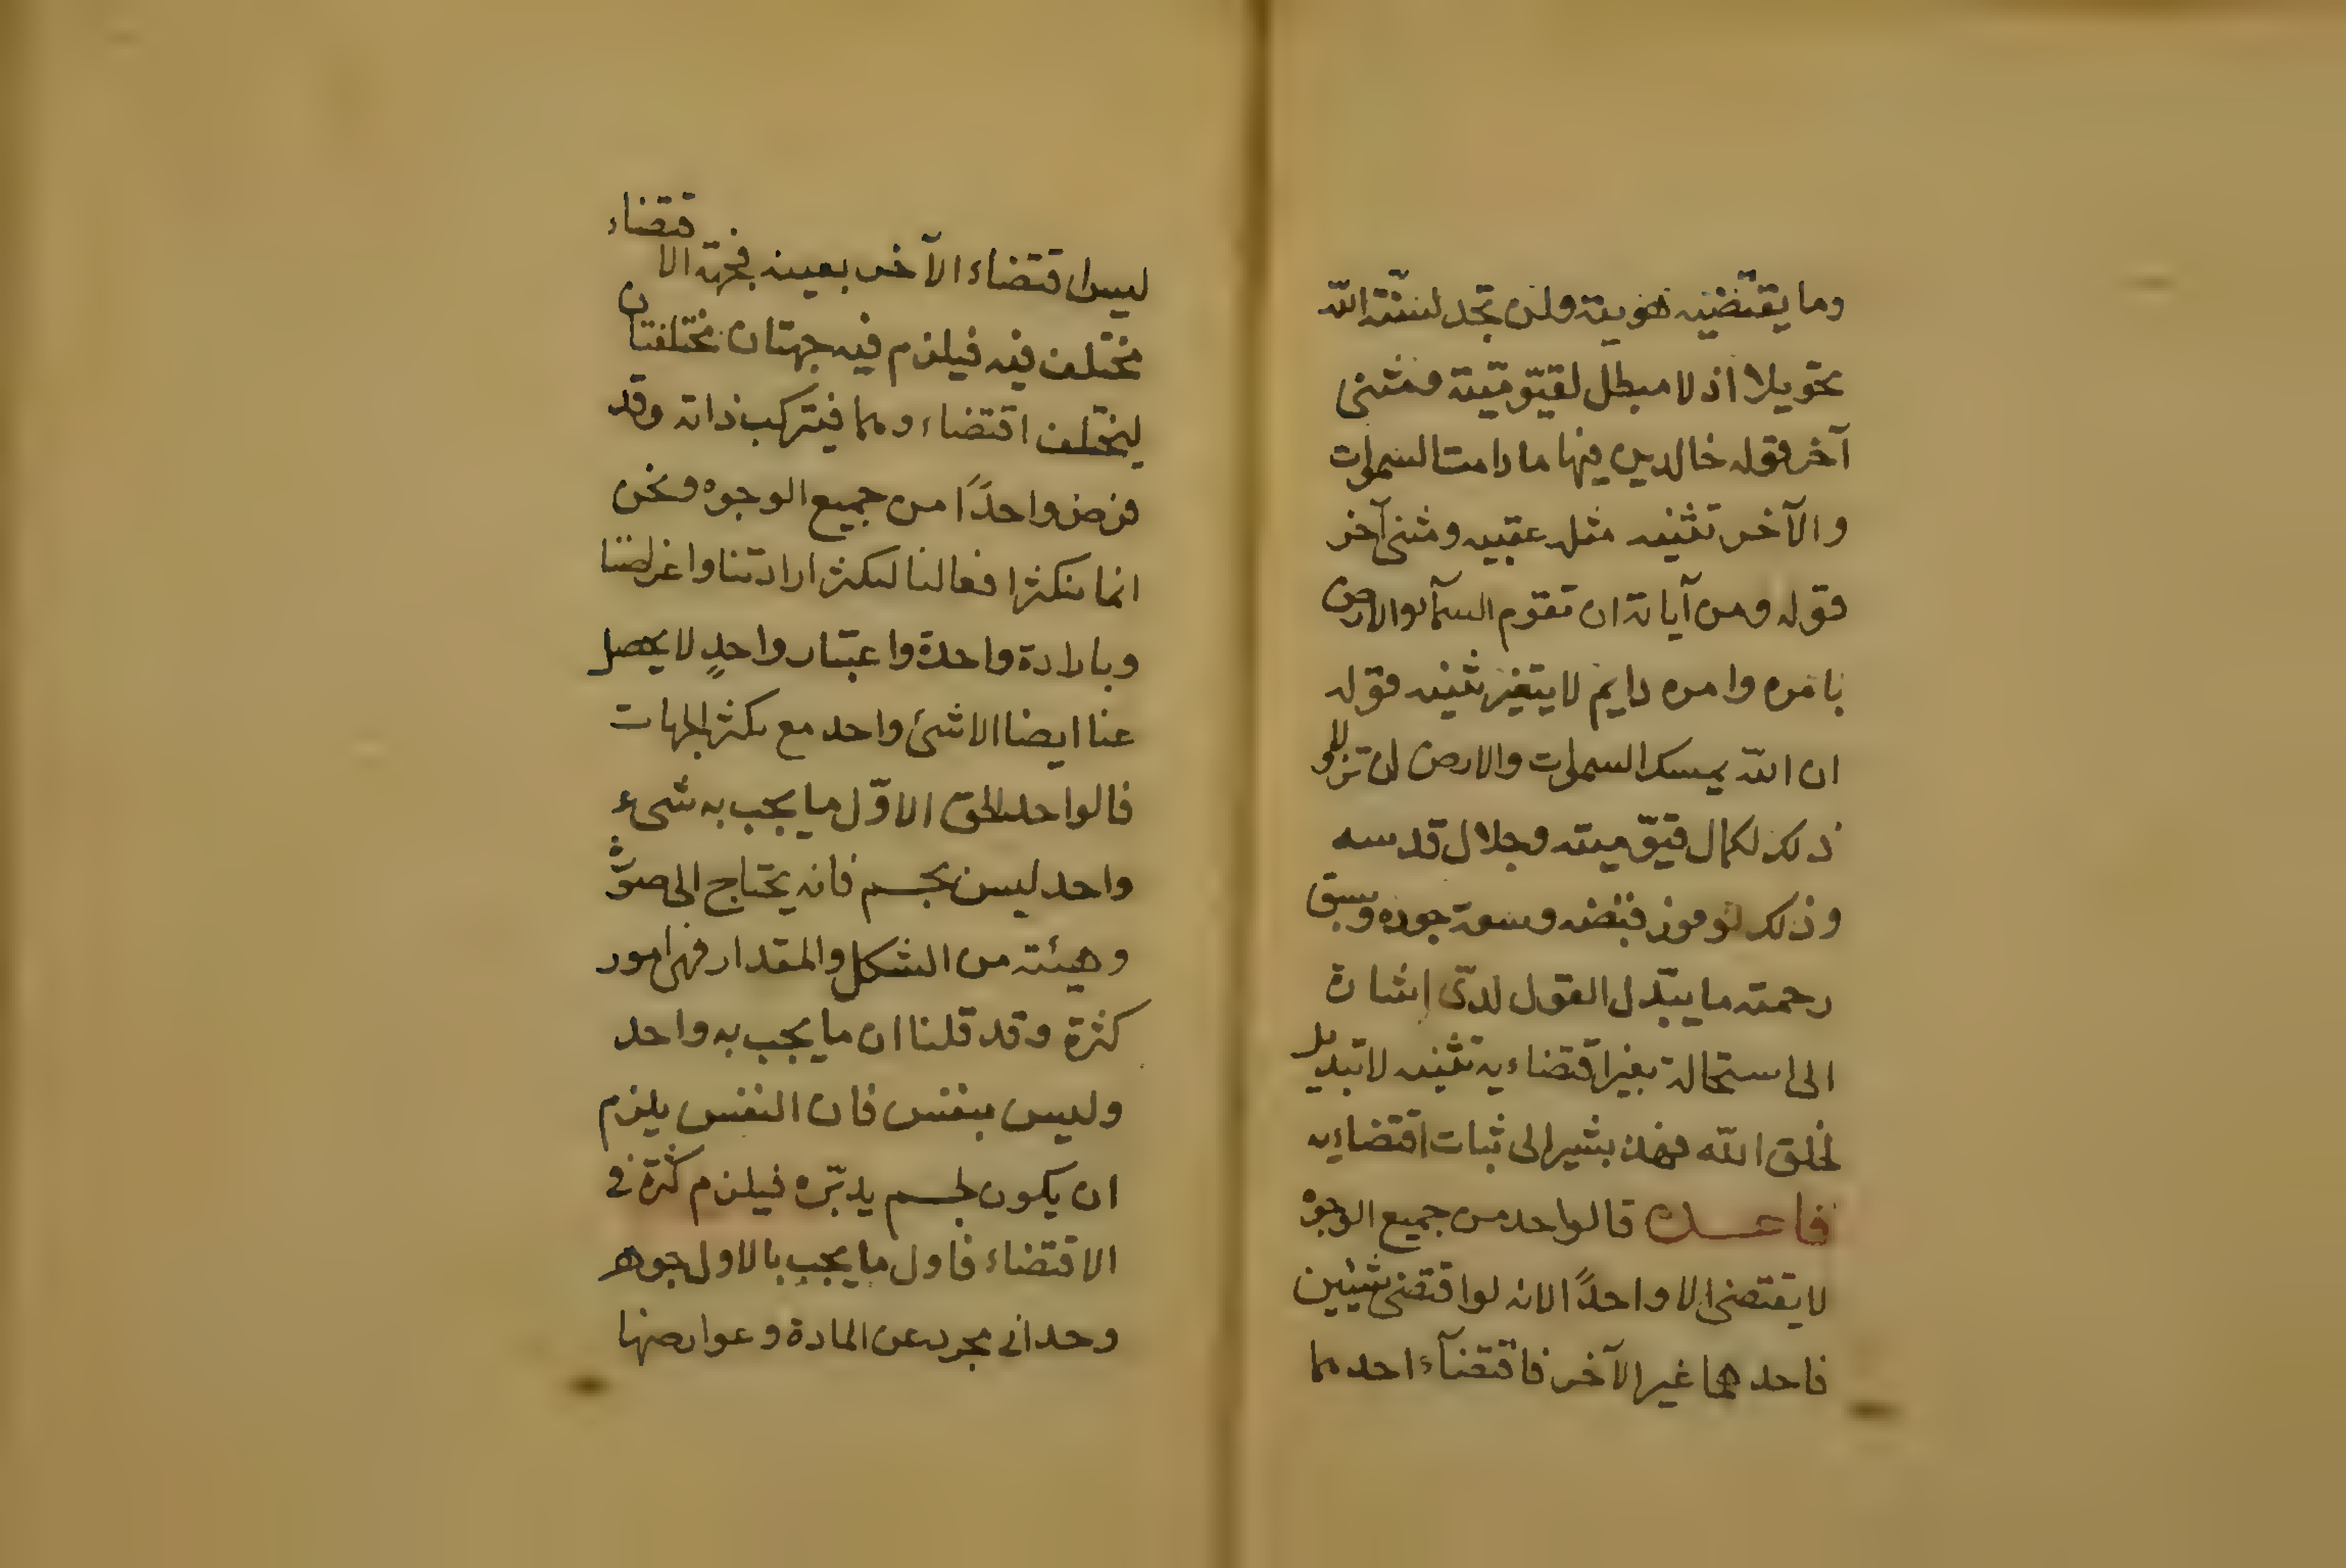 وما يقتضيه هويته ولن تجد لسنة الله
تحويلا اذ لا مبطل لقيّوميته ومثنى
آخر قوله خالدين فيها ما دامت السموات
والآخر تثنيه مثل عقبيه ومثنى آخر
قوله ومن آياته ان تقوم السمآ والارض
بامره وامره دايم لا يتغير تثنيه قوله
ان الله يمسك السموات والارض ان تزولا
ذلك لكمال قيّوميته وجلال قدسه
وذلك لوفور فيضه وسعة جوده وسبق
رحمته ما يبدّل القول لدىّ إشارة
الى استحالة تغير اقتضاءيه تثنيه لا تبديل
لخلق الله فهذه يشير الى ثبات اقتضاءيه
قاعدة فالواحد من جميع الوجوه
لا يقتضى الا واحدًا لانه لو اقتضى شيئين
فاحدهما غير الآخر فاقتضآء احدهما
ليس اقتضاء الآخر بعينه فجهة الاقتضاء
مختلف فيه فيلزم فيه جهتان مختلفتان
ليختلف اقتضاءوهما فيتركب ذاته وقد
فرض واحدًا من جميع الوجوه ونحن
انما تتكثر افعالنا لتكثر ارادتنا واغراضنا
وبارادة واحدة واعتبار واحدٍ لا يحصل
عنا ايضا الا شئ واحد مع تكثر الجهات
فالواحد الحق الاوّل ما يجب به شىء
واحد ليس بجسم فانه يحتاج الى صورة
وهيئته من الشكل والمقدار فهى امور
كثرة وقد قلنا ان ما يجب به واحد
وليس بنفس فان النفس يلزم
ان يكون لجسم يدبّره فيلزم كثرة فى
الاقتضاء فاول ما يجب بالاول جوهر
وحدانى مجرد عن المادة وعوارضها